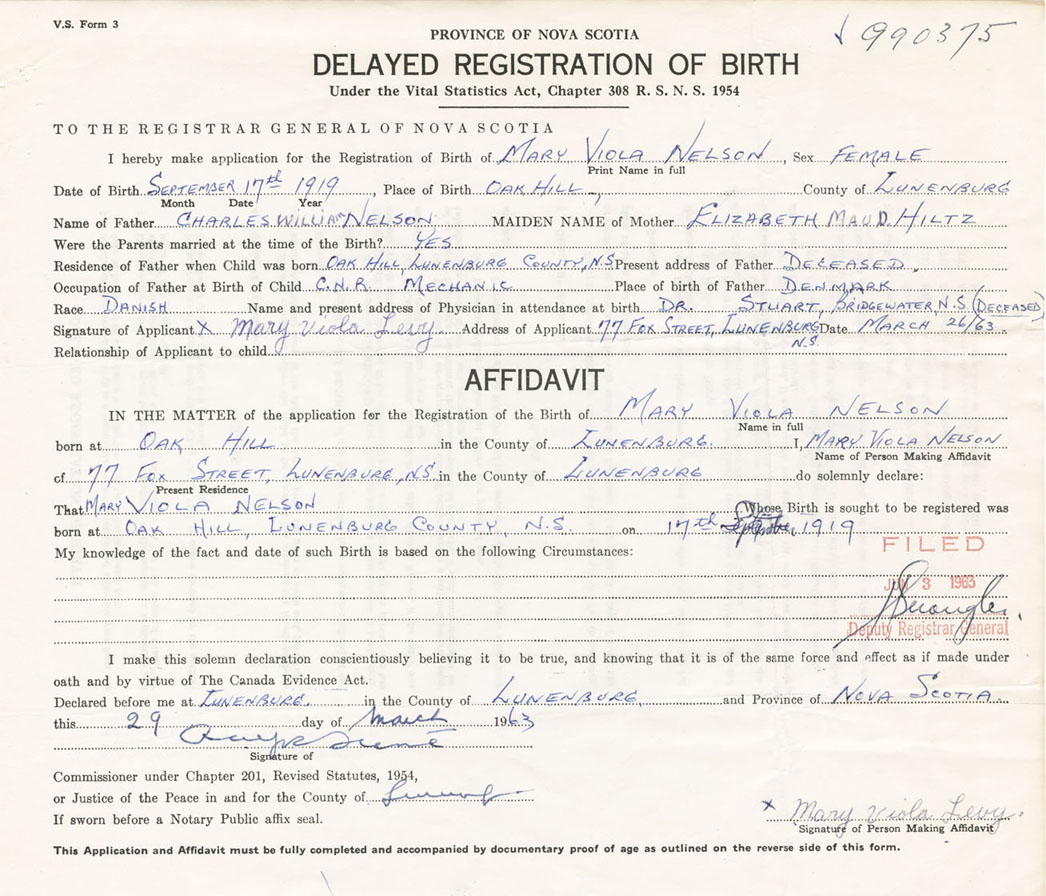 V.S. Form 3
990375
PROVINCE OF NOVA SCOTIA
DELAYED REGISTRATION OF BIRTH
Under the Vital Statistics Act, Chapter 308 R. S. N. S. 1954
TO THE REGISTRAR GENERAL OF NOVA SCOTIA
I hereby make application for the Registration of Birth of MARY VIOLA NELSON, Sex FEMALE
Print Name in full
Date of Birth SEPTEMBER 17th 1919, Place of Birth OAK HILL, County of LUNENBURG
Month Date Year
Name of Father CHARLES WILLIAM NELSON MAIDEN NAME of Mother ELIZABETH MAUD. HILTZ
Were the Parents married at the time of the Birth? YES
Residence of Father when Child was born OAK HILL, LUNENBURG COUNTY, N.S Present address of Father DECEASED
Occupation of Father at Birth of Child C.N.R. MECHANIC Place of birth of Father DENMARK
Race DANISH Name and present address of Physician in attendance at birth DR. STUART, BRIDGEWATER, N.S (DECEASED)
Signature of Applicant X Mary Viola Levy. Address of Applicant 77 FOX STREET, LUNENBURG N.S. Date MARCH 26/63
Relationship of Applicant to child
AFFIDAVIT
IN THE MATTER of the application for the Registration of the Birth of MARY VIOLA NELSON
Name in full
born at OAK HILL in the County of LUNENBURG. I, MARY VIOLA NELSON
Name of Person Making Affidavit
of 77 FOX STREET, LUNENBURG, N.S. in the County of LUNENBURG do solemnly declare:
Present Residence
That MARY VIOLA NELSON Whose Birth is sought to be registered was
born at OAK HILL, LUNENBURG COUNTY, N.S. on 17th September, 1919
My knowledge of the fact and date of such Birth is based on the following Circumstances:
FILED
3 1963
Deputy Registrar General
I make this solemn declaration conscientiously believing it to be true, and knowing that it is of the same force and effect as if made under
oath and by virtue of The Canada Evidence Act.
Declared before me at LUNENBURG, in the County of LUNENBURG, and Province of NOVA SCOTIA
this 29 day of March 1963
Signature of
Commissioner under Chapter 201, Revised Statutes, 1954,
or Justice of the Peace in and for the County of
If sworn before a Notary Public affix seal.
X Mary Viola Levy.
Signature of Person Making Affidavit
This Application and Affidavit must be fully completed and accompanied by documentary proof of age as outlined on the reverse side of this form.